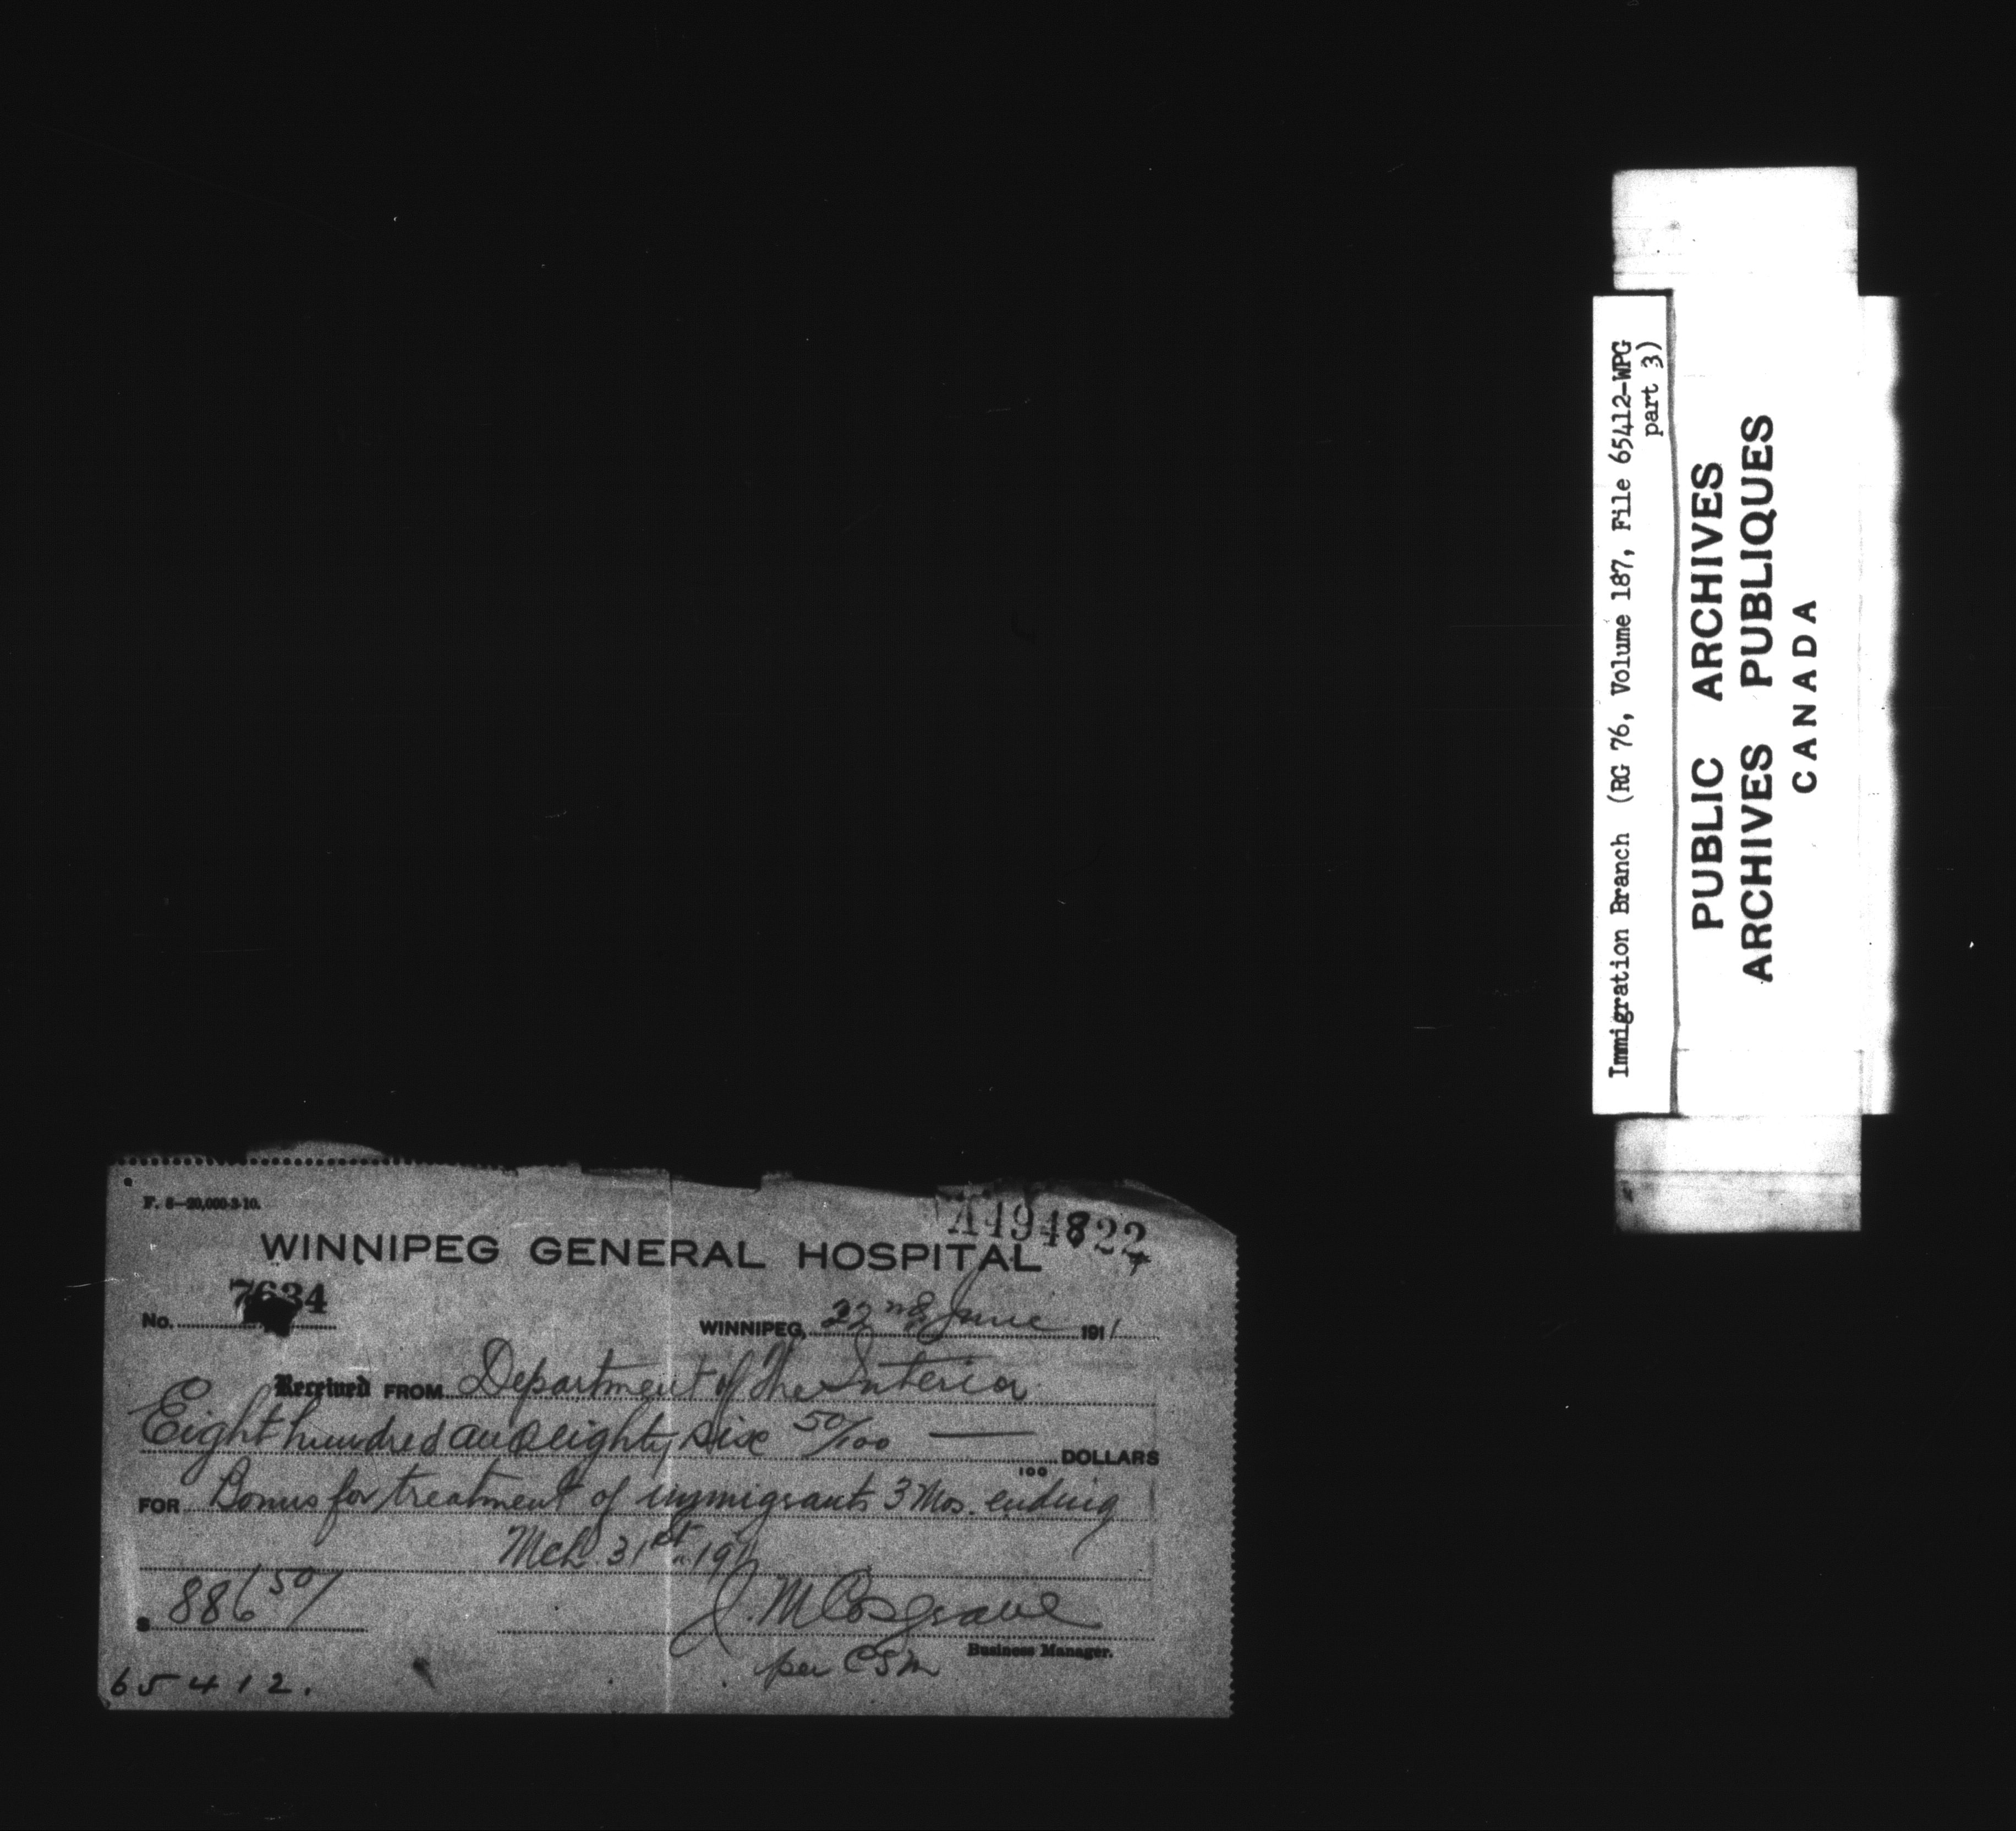 F. 8—20,000-3-10.
A494822
WINNIPEG GENERAL HOSPITAL
No. 7634
WINNIPEG, 22nd June 1911
Received FROM Department of the Interior
Eight hundred and eighty six 50/100 — DOLLARS
100
FOR Bonus for treatment of immigrants 3 Mos. ending
Mch 31st 1911
$ 886 50/
J. M Cosgrave
Business Manager.
per CSM
65412.
Immigration Branch (RG 76, Volume 187, File 65412-WPG
part 3)
PUBLIC ARCHIVES
ARCHIVES PUBLIQUES
CANADA